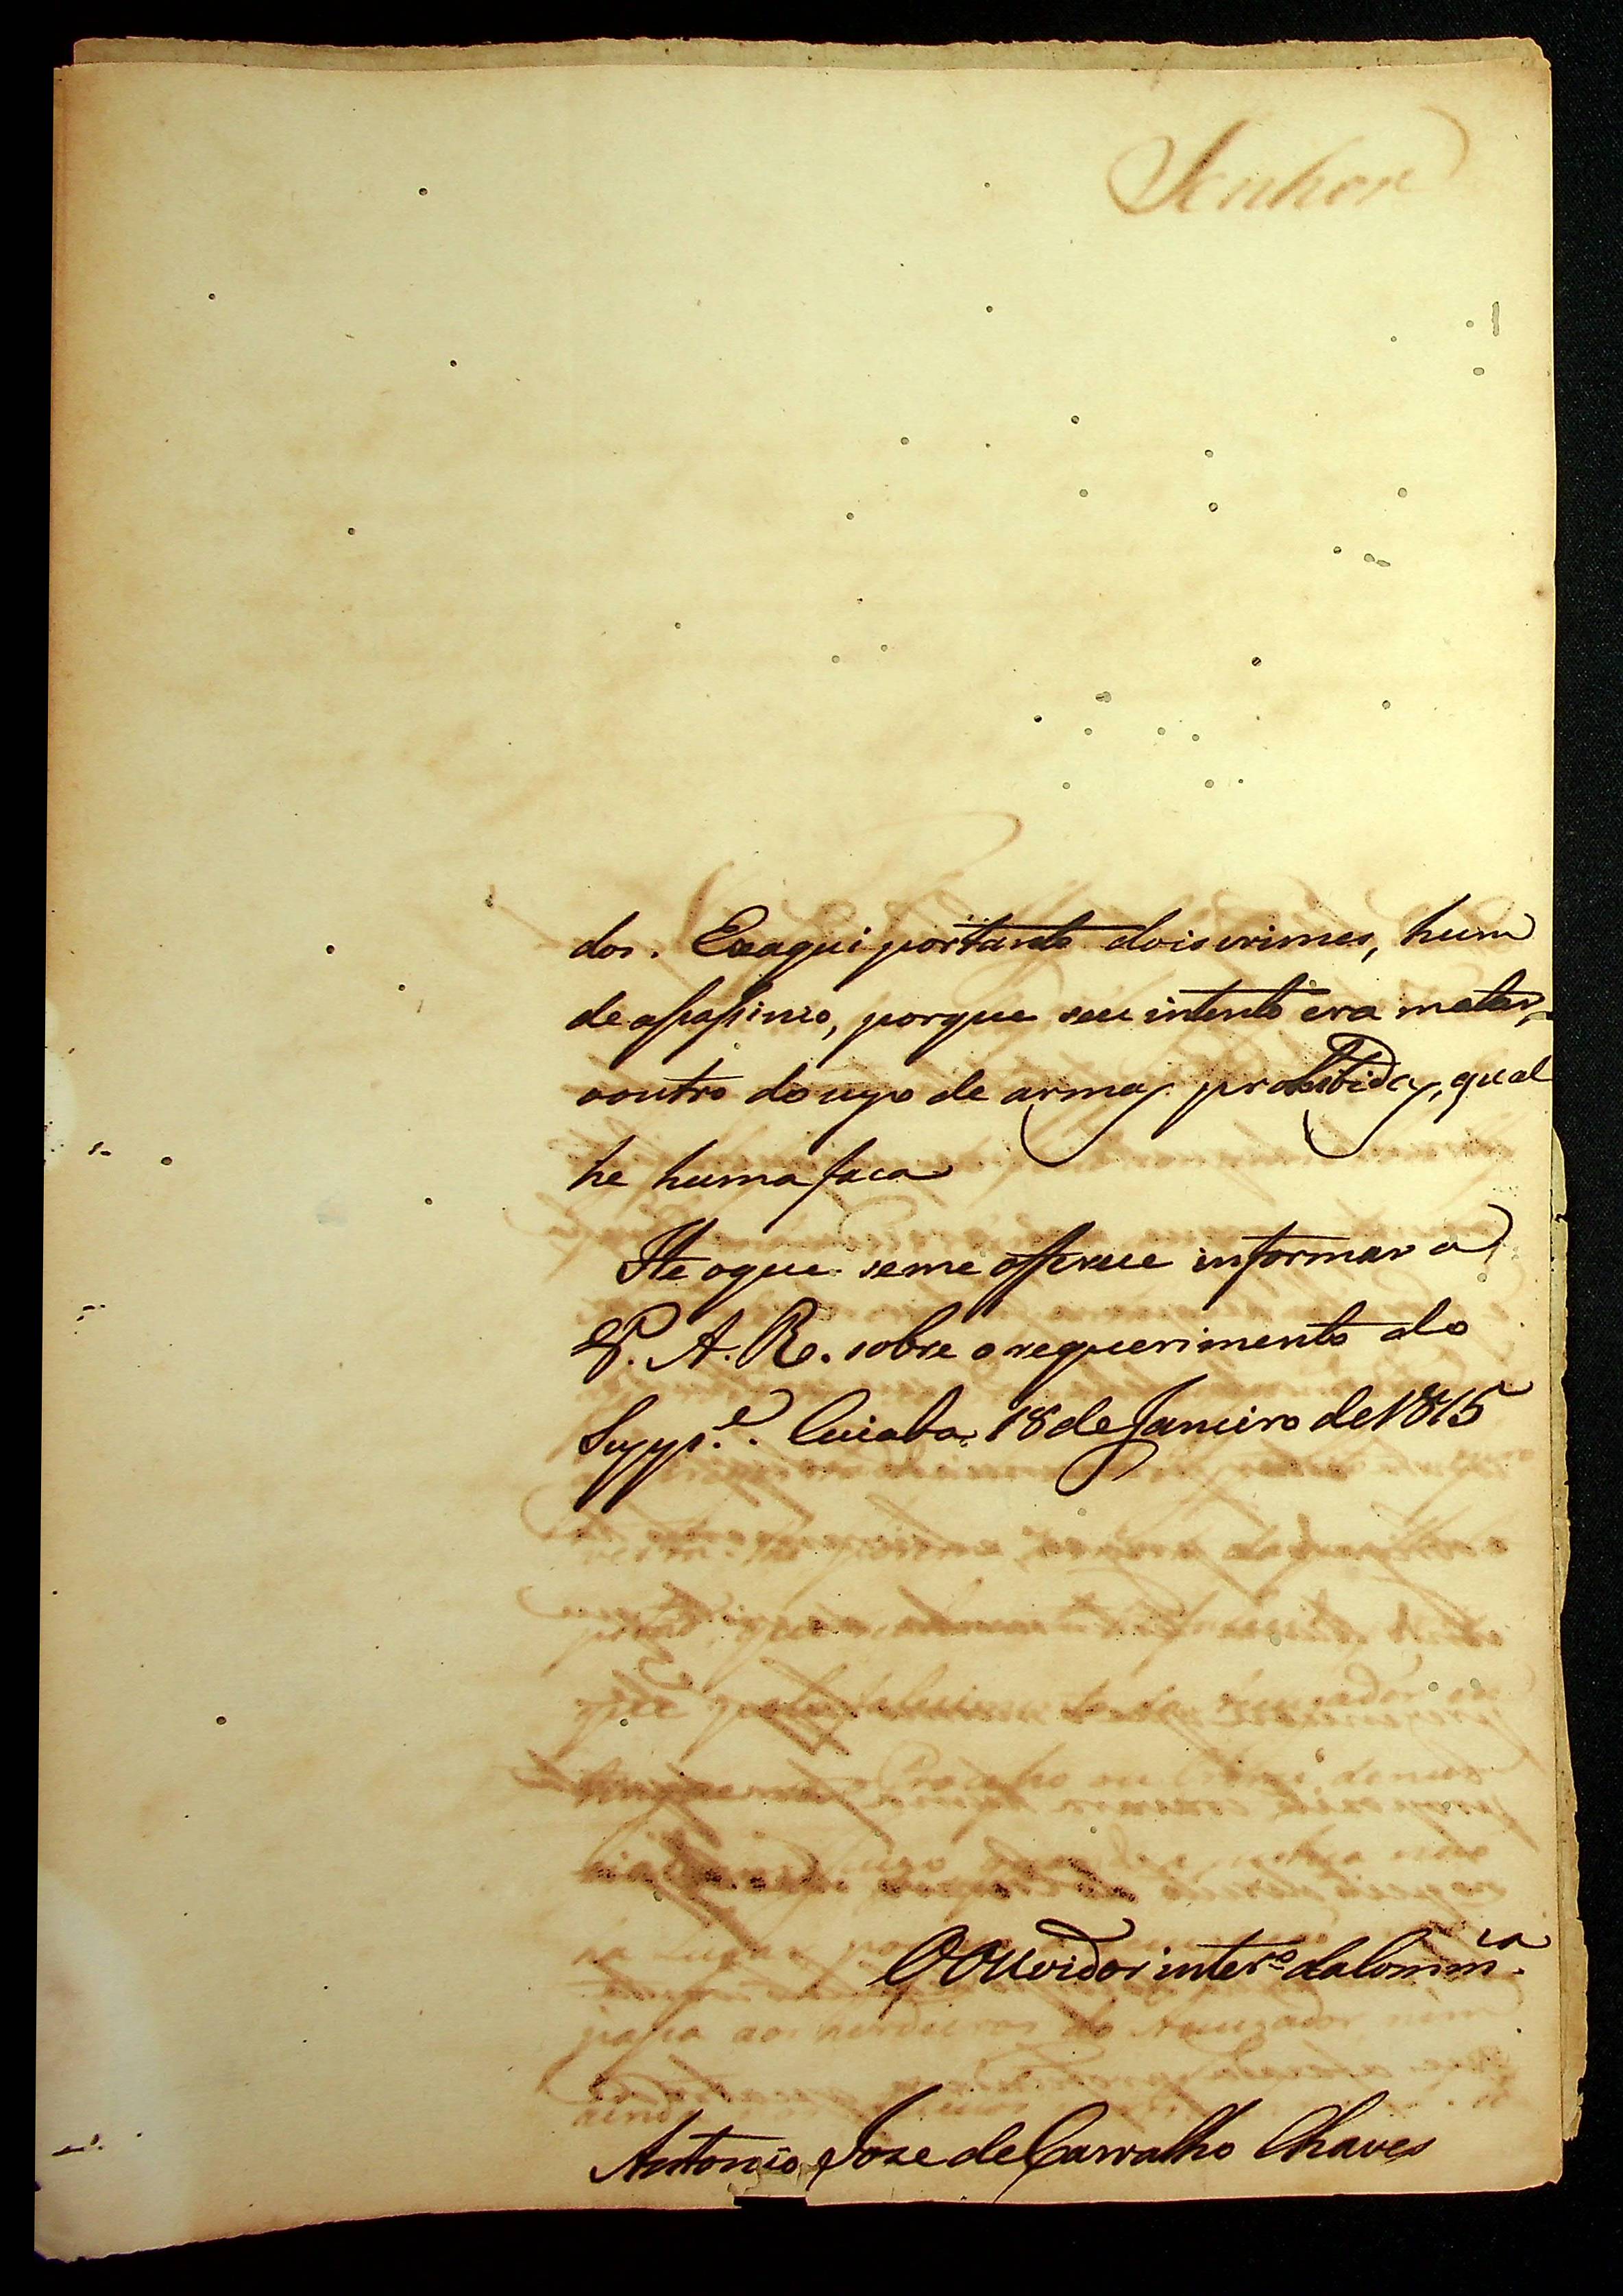 Senhor
dos. Exaqui portanto dois crimes, hum
de assassinio, porque seu intento era matar,
e outro do uzo de armas prohibidas, qual
he huma faca
He o que se me offerece informar a
V. A. R. sobre o requerimento do
Supp.e. Cuiaba 18 de Janeiro de 1815
O Ouvidor inter.o da Comm.ca
Antonio Joze de Carvalho Chaves